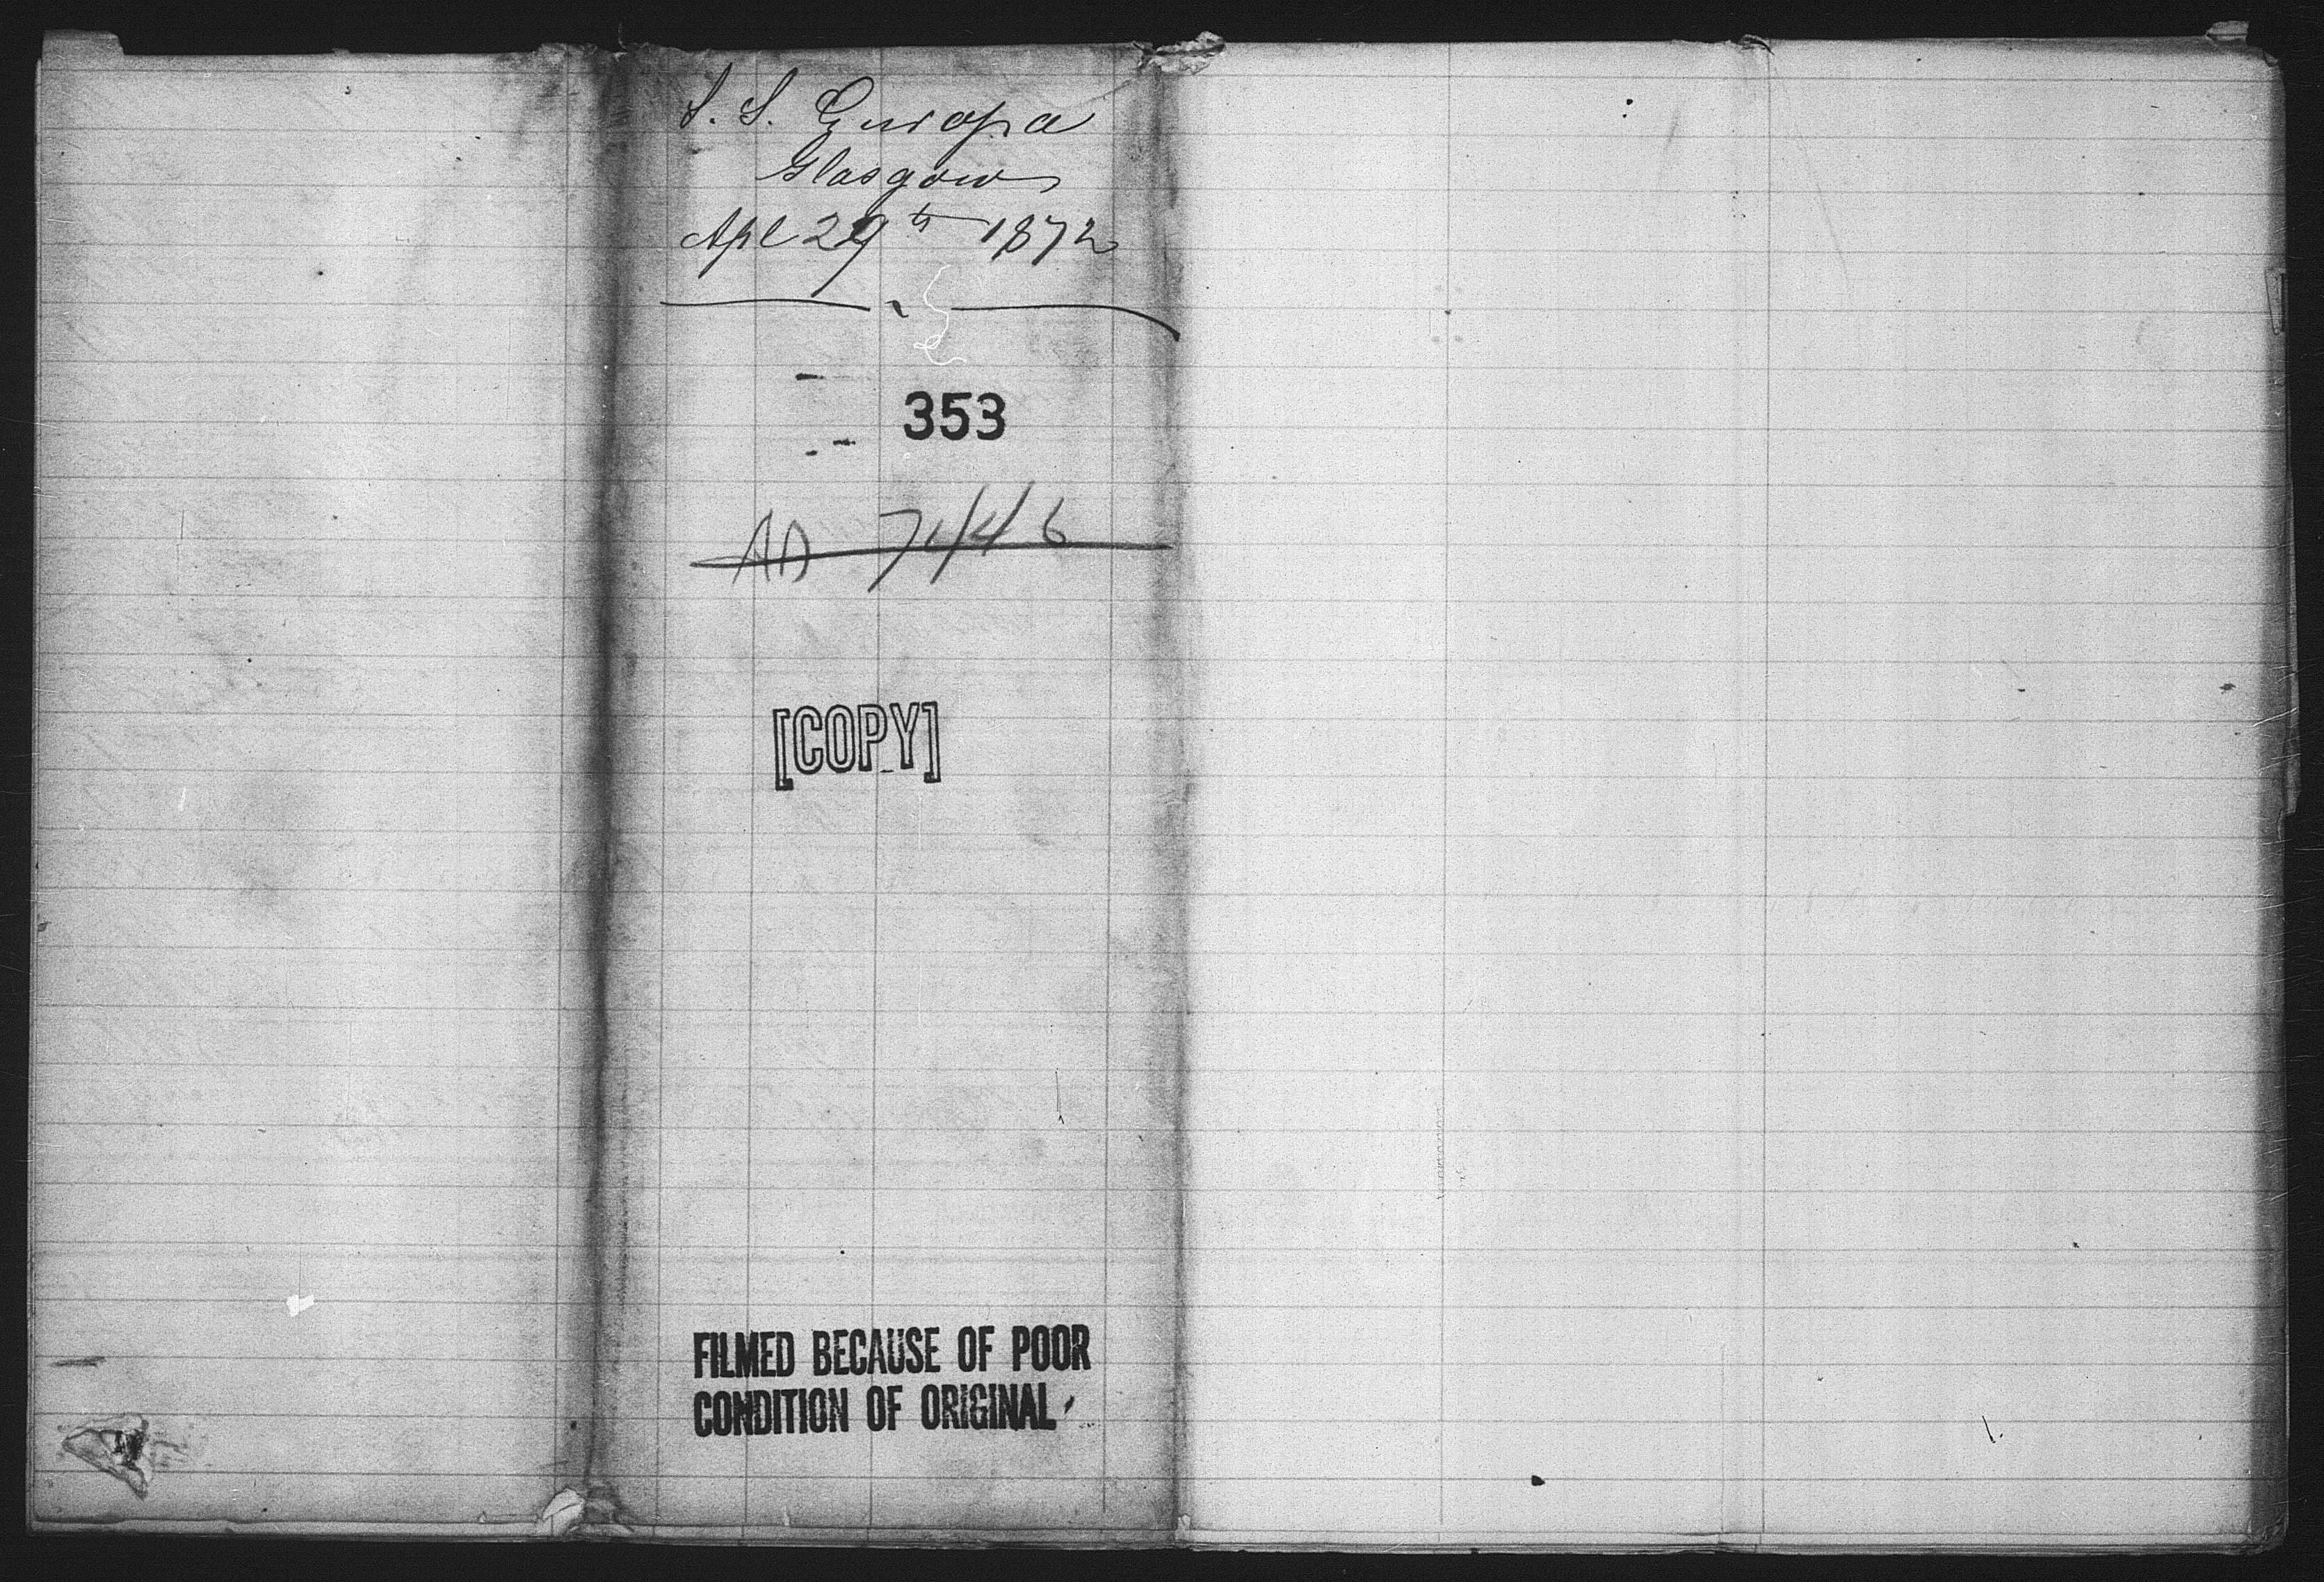 S. S. Europa
Glasgow
Apl 29th 1872
353
AA 7446
[COPY]
FILMED BECAUSE OF POOR
CONDITION OF ORIGINAL